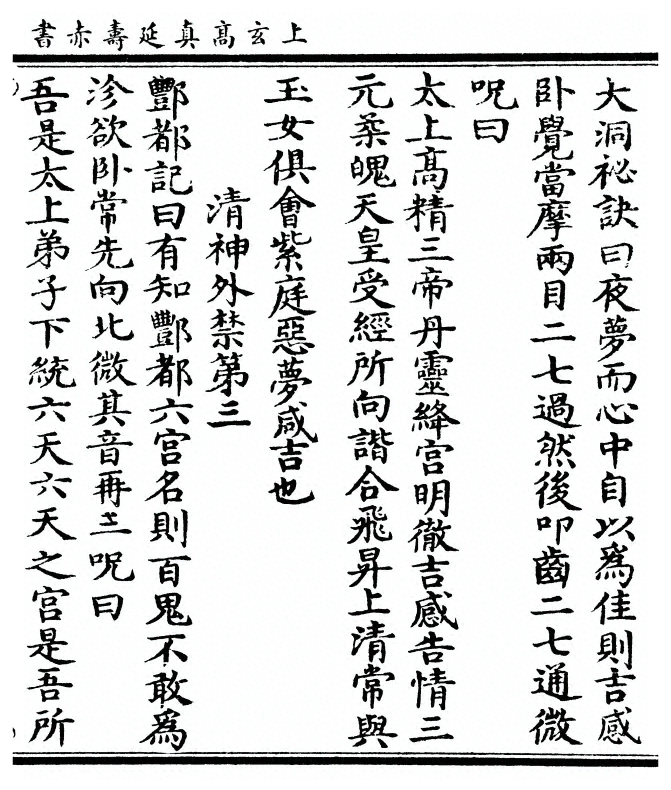 上玄髙真延壽赤書
大洞祕訣曰夜夢而心中自以為佳則吉感
卧覺當摩兩目二七過然後叩齒二七通微
呪曰
太上髙精三帝丹靈絳宮明徹吉感告情三
元柔魄天皇受經所向諧合飛昇上清常與
玉女俱會紫庭惡夢咸吉也
清神外禁第三
酆都記曰有知酆都六宮名則百鬼不敢為
沴欲卧常先向北微其音再三呪曰
吾是太上弟子下統六天六天之宮是吾所